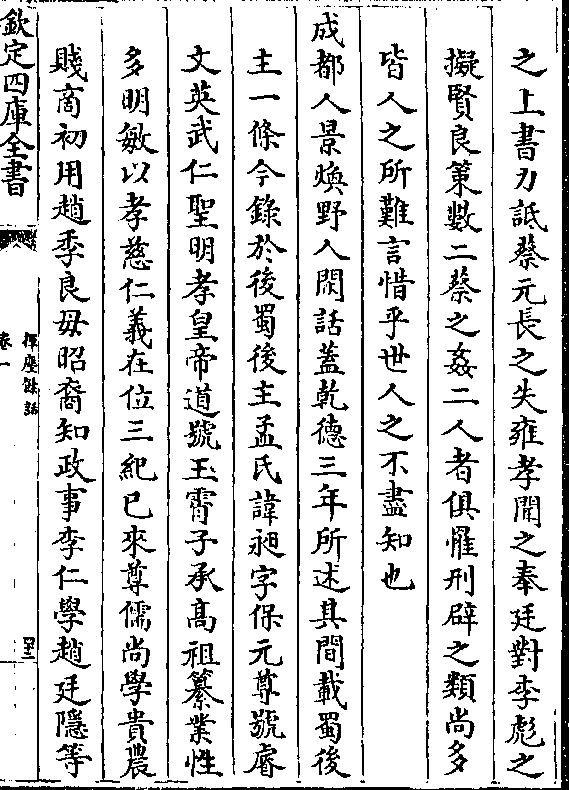 之上書力詆蔡元長之失雍孝聞之奉廷對李彪之
擬賢良策數二蔡之姦二人者俱罹刑辟之類尚多
皆人之所難言惜乎世人之不盡知也
成都人景煥野人閑話蓋乾德三年所述其間載蜀後
主一條今錄於後蜀後主孟氏諱昶字保元尊號睿
文英武仁聖明孝皇帝道號玉霄子承髙祖纂業性
多明敏以孝慈仁義在位三紀已來尊儒尚學貴農
賤商初用趙季良毋昭裔知政事李仁學趙廷隱等
欽定四庫全書
揮麈餘話
卷一